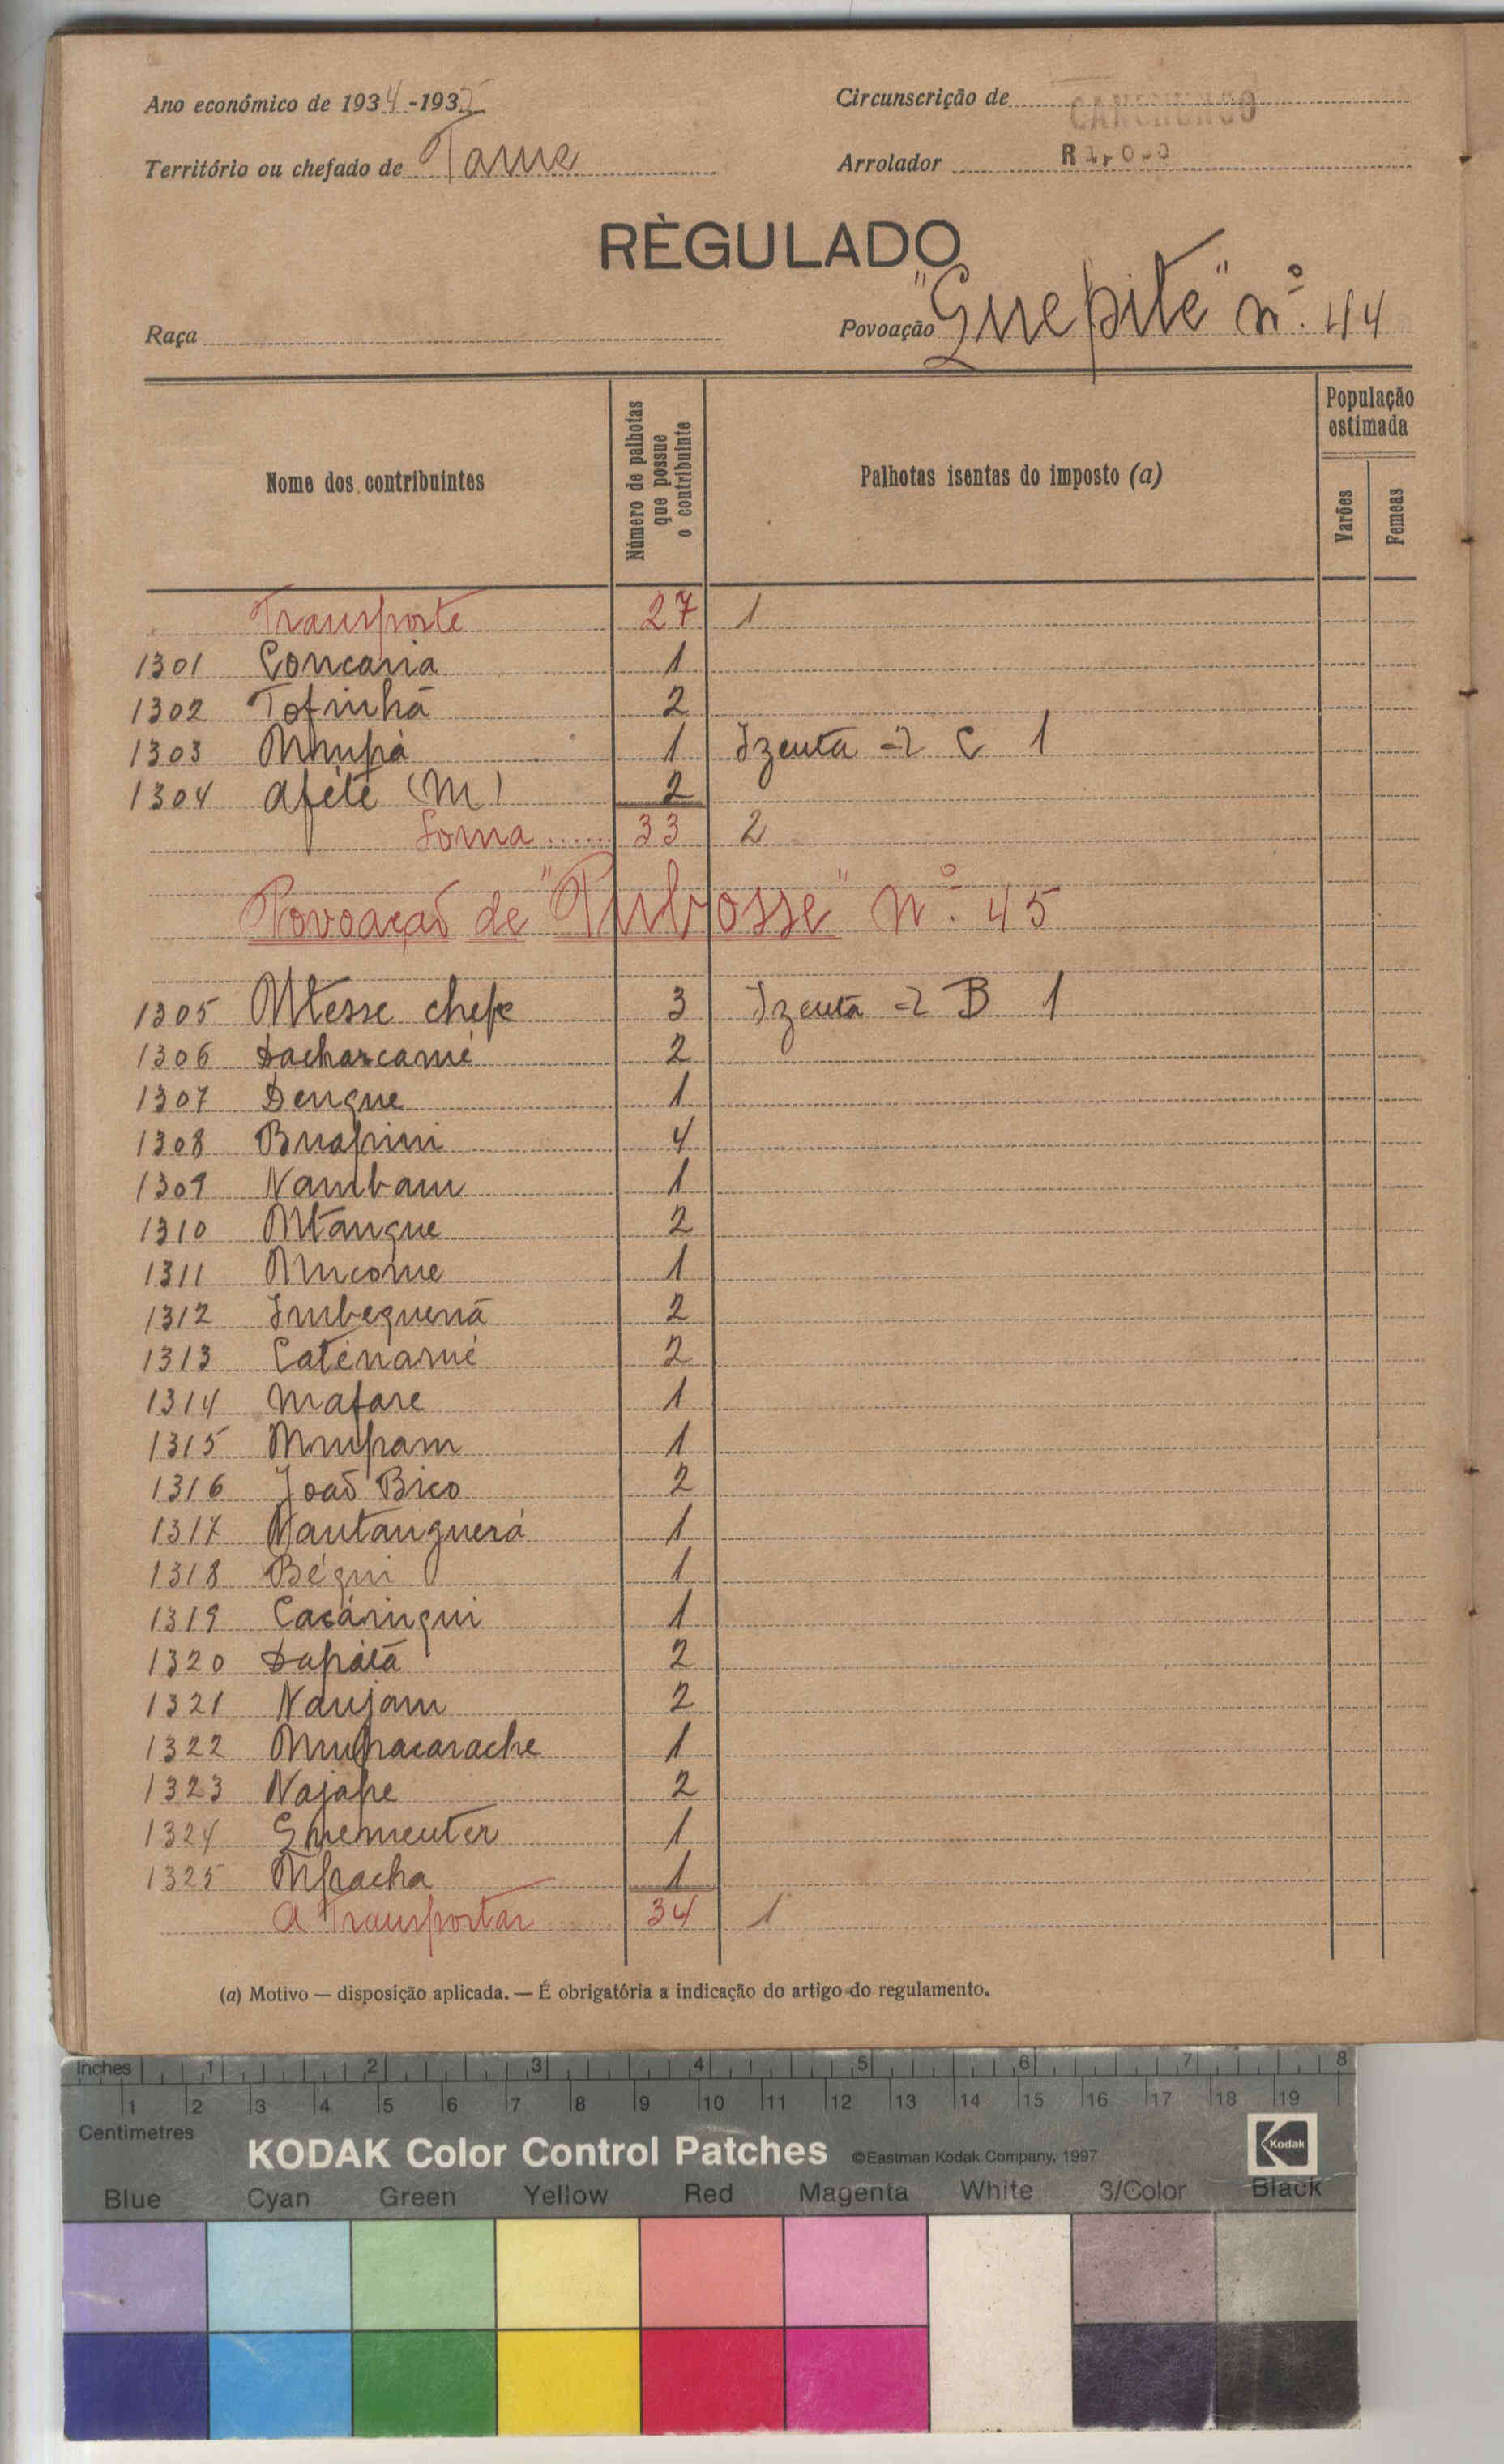 Ano económico de 1934-1935
Circunscrição de CANCHUNGO
Território ou chefado de Tame
Arrolador
RÈGULADO
Raça
Povoação "Guepite" nº. 44
Nome dos contribuintes
Número de palhotas que possue o contribuinte
Palhotas isentas do imposto (a)
População estimada
Varões
Femeas
Transporte 27 1
1301 Concaria 1
1302 Tofinhã 2
1303 Mnupà 1 Izenta =2 C 1
1304 Afété (M) 2
Soma...... 33 2
Povoação de "Pubosse" Nº. 45
1305 Mtesse chefe 3 Izenta =2 B 1
1306 Dacharcamé 2
1307 Dengue 1
1308 Buapini 4
1309 Nambam 1
1310 Mtangue 2
1311 Mucome 1
1312 Imbequenã 2
1313 Caténamé 2
1314 Mafare 1
1315 Mnupam 1
1316 João Bico 2
1317 Nautanguerá 1
1318 Béqui 1
1319 Cacáringui 1
1320 Dapátã 2
1321 Naujam 2
1322 Mupacarache 1
1323 Najape 2
1324 Guementer 1
1325 Mpacha 1
A Transportar 34 1
(a) Motivo — disposição aplicada. — É obrigatória a indicação do artigo do regulamento.
Inches 1 2 3 4 5 6 7 8
1 2 3 4 5 6 7 8 9 10 11 12 13 14 15 16 17 18 19
Centimetres
KODAK Color Control Patches ©Eastman Kodak Company, 1997 Kodak
Blue Cyan Green Yellow Red Magenta White 3/Color Black